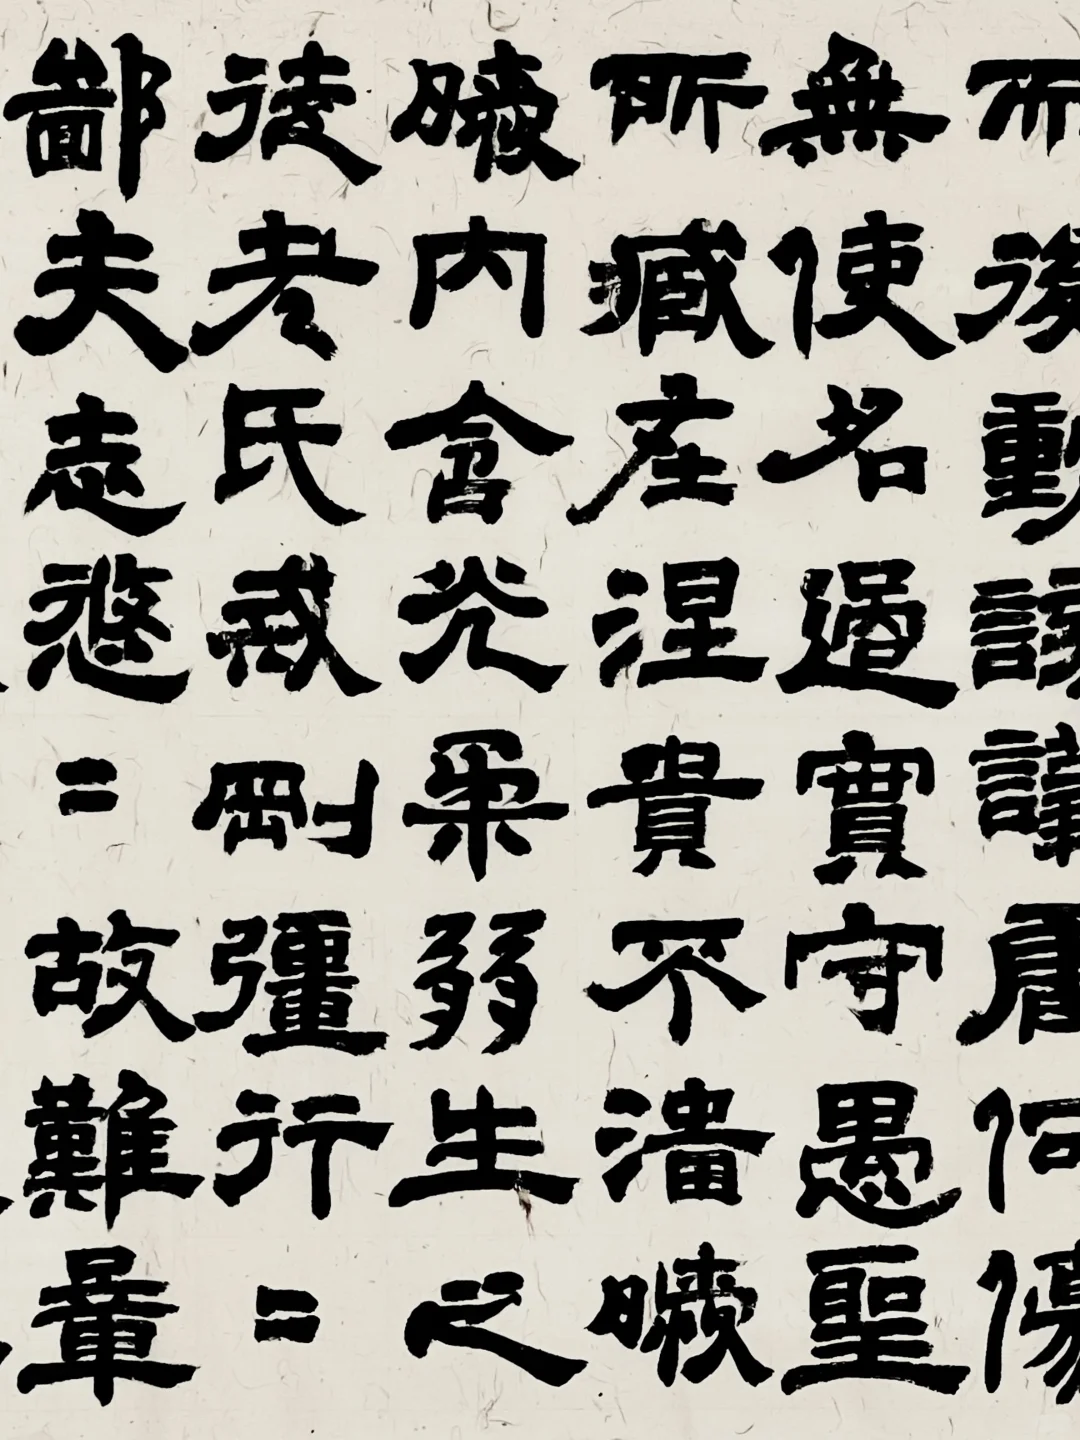 而後動謗議庸何傷
無使名過實守愚聖
所臧在涅貴不淄曖
曖內含光柔弱生之
徒老氏戒剛彊行=
鄙夫志悠=故難量